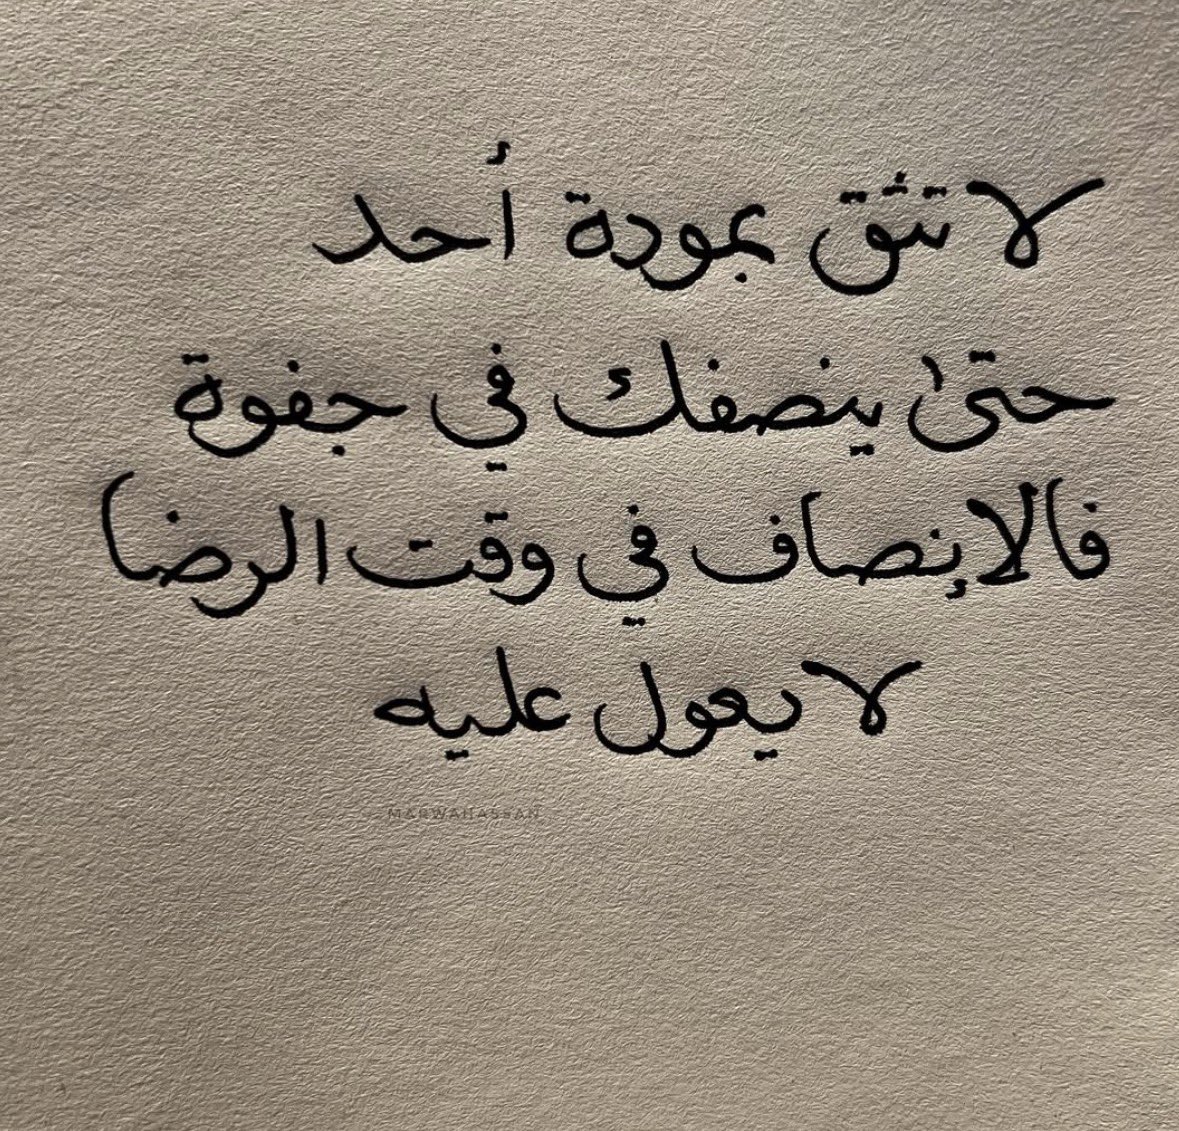 لا تثق بمودة أحد
حتىٰ ينصفك في جفوة
فالإنصاف في وقت الرضا
لا يعول عليه
MARWAHASSAN